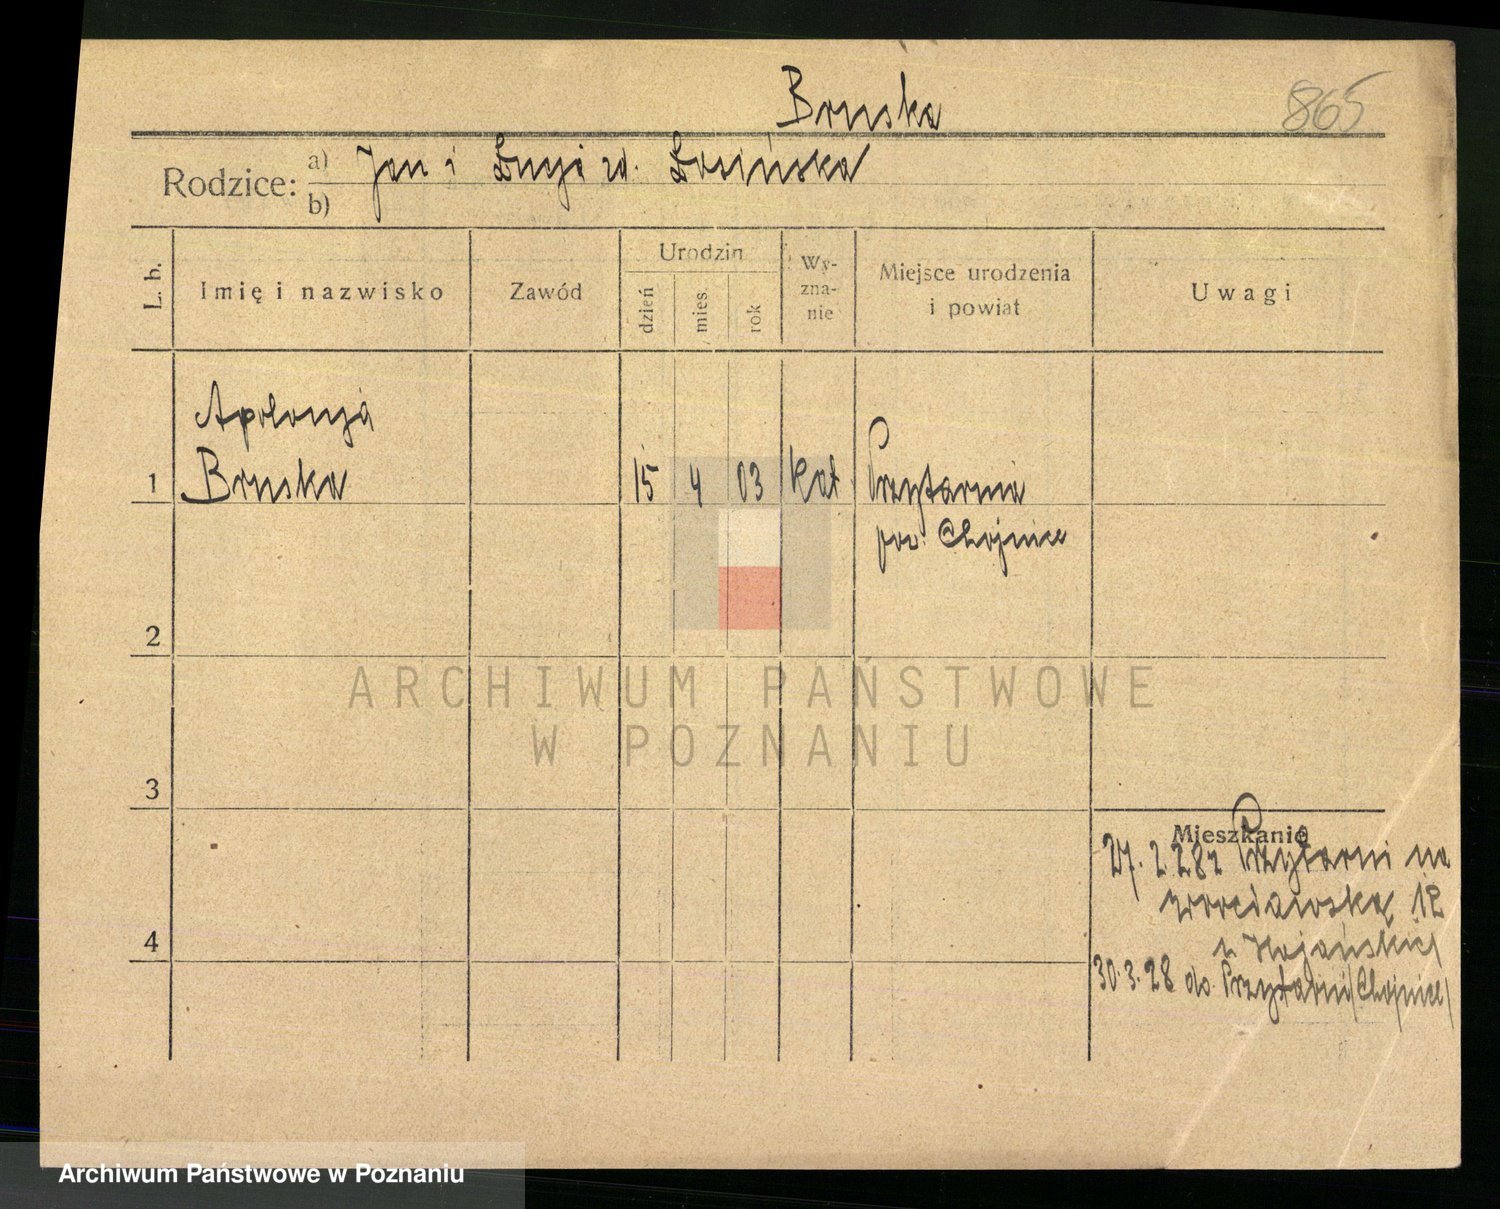 Bruska
865
Rodzice: a) Jan i
b)
L. b.
Imię i nazwisko
Zawód
Urodzin
dzień
mies.
rok
Wy-
zna-
nie
Miejsce urodzenia
i powiat
Uwagi
Apolonja
1 Bruska 15 4 03 kat Przytarnia
pow. Chojnice
2
3
4
Mieszkanie
27. 2 28 z Przytarni na
12
30.3.28 do Przytarni (Chojnice)
ARCHIWUM PAŃSTWOWE
W POZNANIU
Archiwum Państwowe w Poznaniu